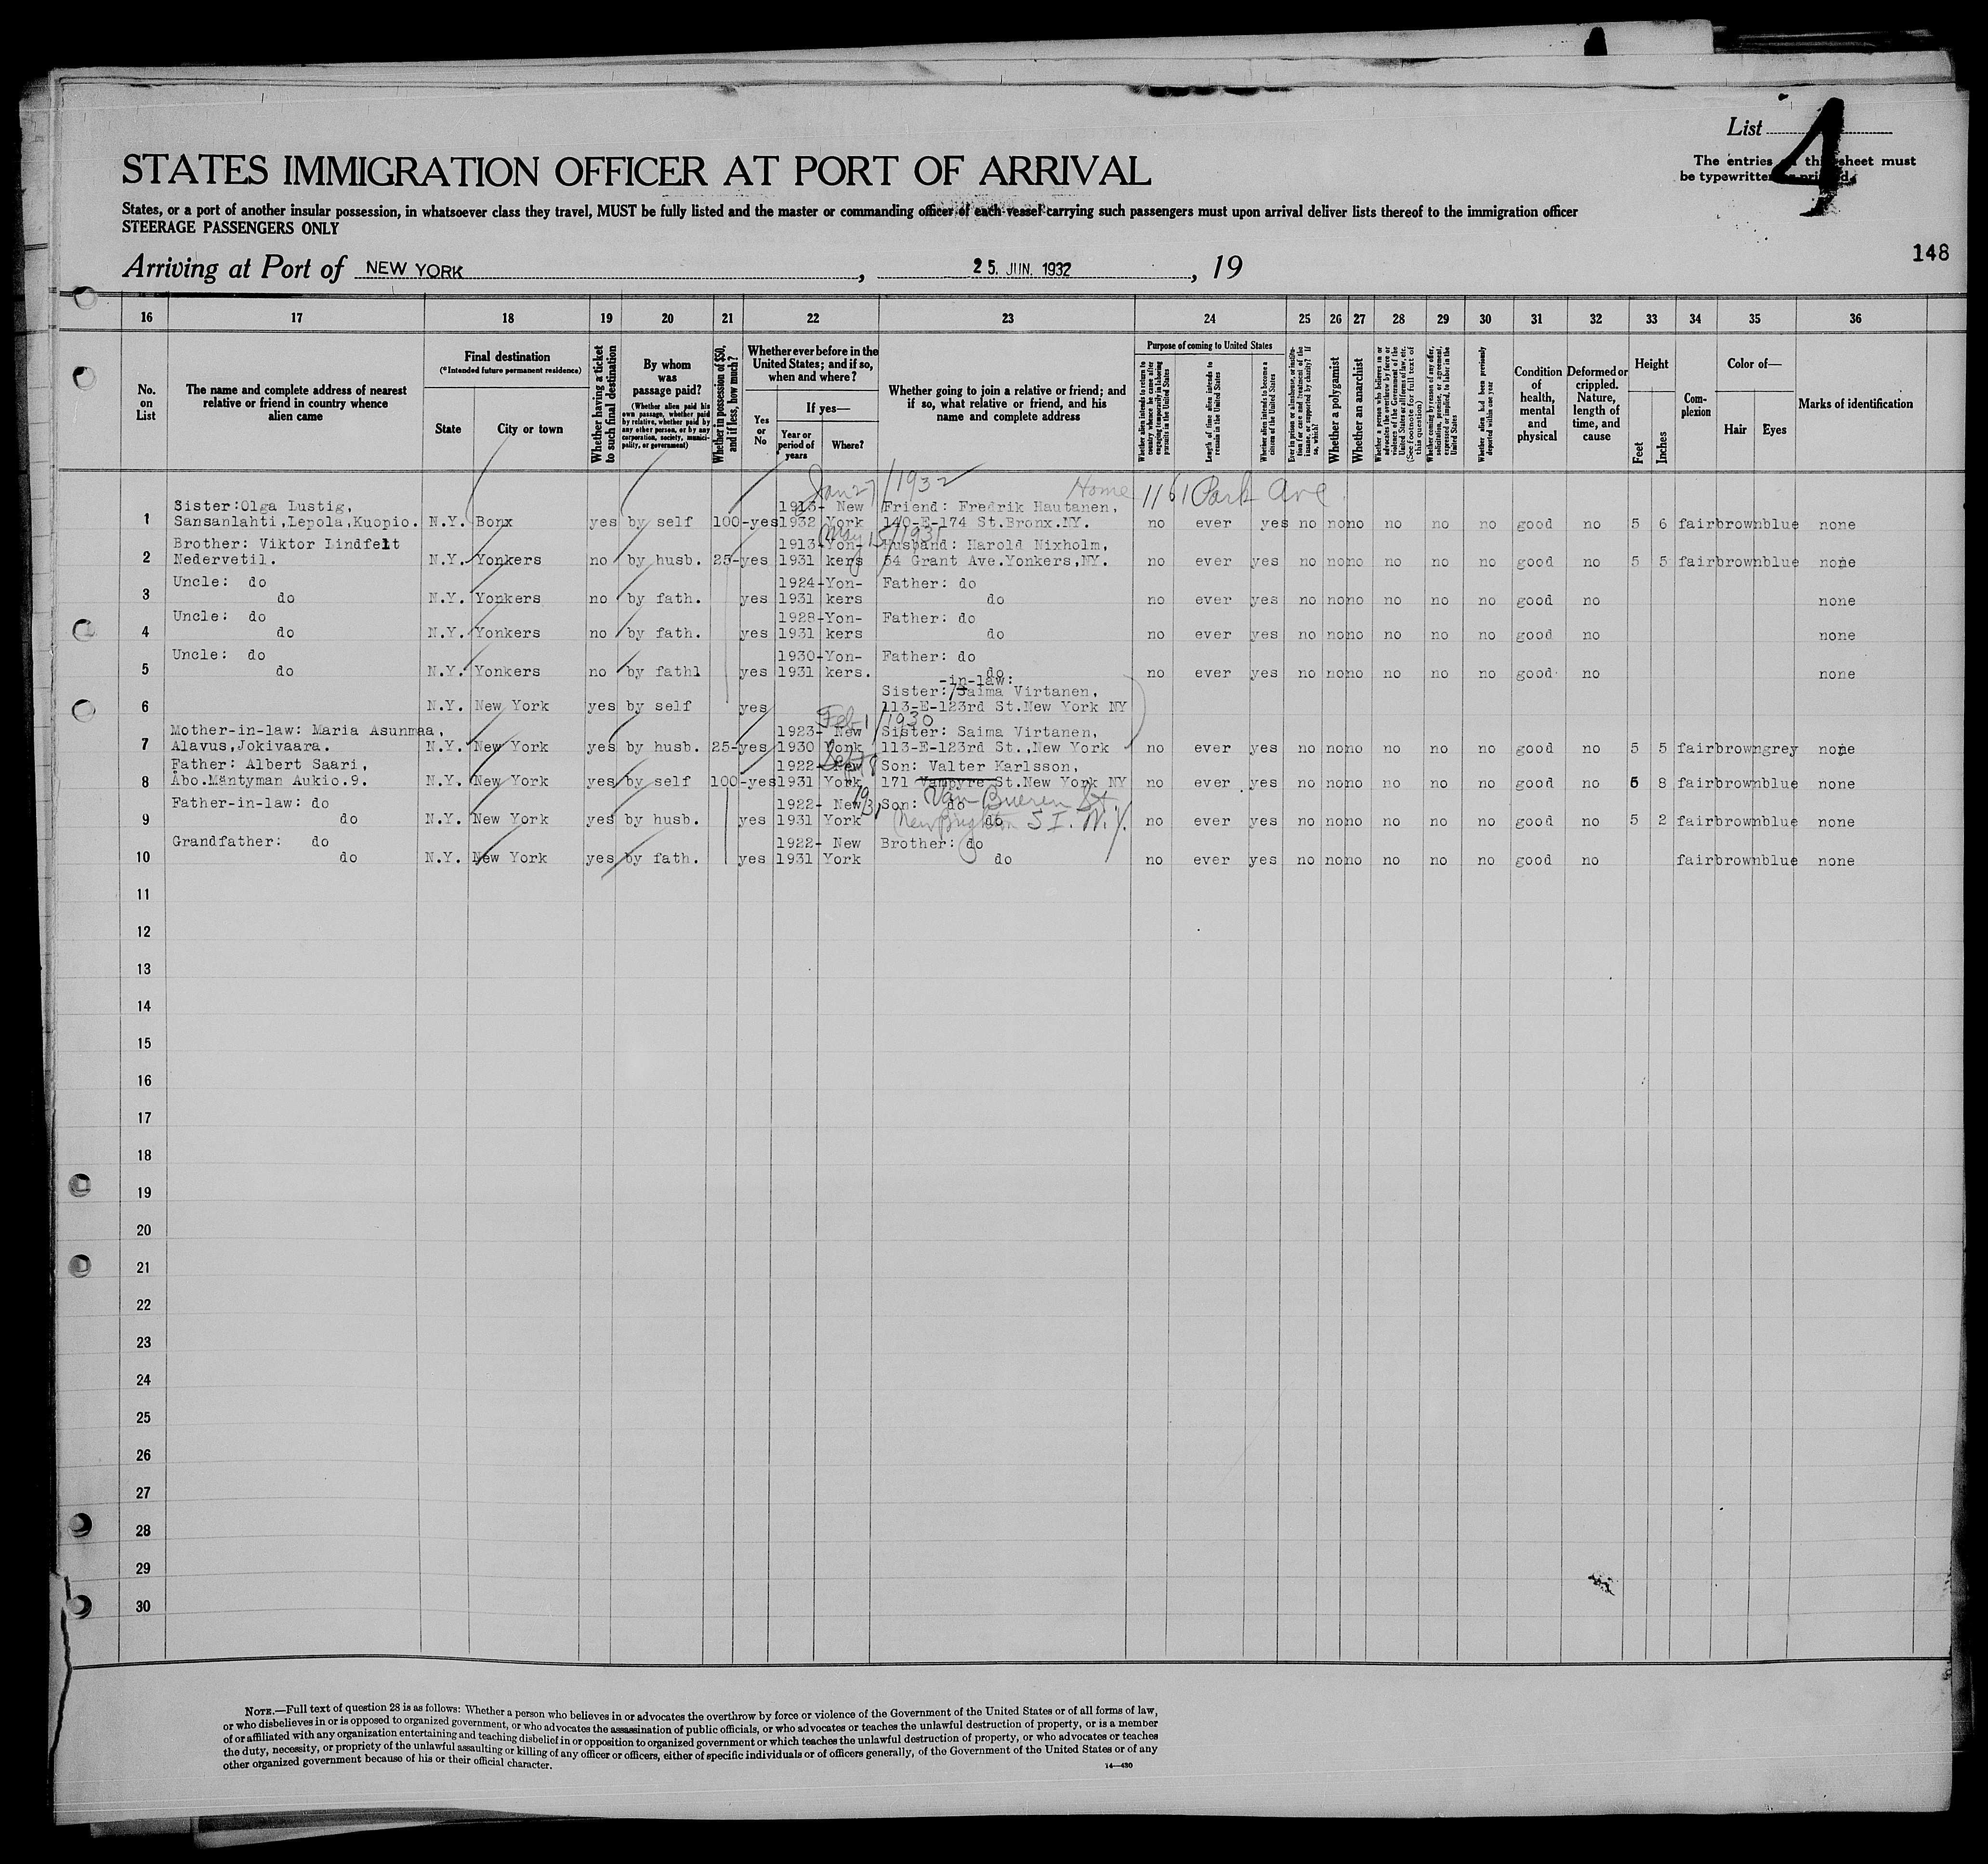 List 4
The entries on this sheet must
be typewritten or printed.
STATES IMMIGRATION OFFICER AT PORT OF ARRIVAL
States, or a port of another insular possession, in whatsoever class they travel, MUST be fully listed and the master or commanding officer of each vessel carrying such passengers must upon arrival deliver lists thereof to the immigration officer
STEERAGE PASSENGERS ONLY
148
Arriving at Port of NEW YORK, 25. JUN. 1932, 19
16 17 18 19 20 21 22 23 24 25 26 27 28 29 30 31 32 33 34 35 36
No. on List
The name and complete address of nearest relative or friend in country whence alien came
Final destination
(*Intended future permanent residence)
State
City or town
Whether having a ticket to such final destination
By whom was passage paid?
(Whether alien paid his own passage, whether paid by relative, whether paid by any other person, or by any corporation, society, municipality, or government)
Whether in possession of $50, and if less, how much?
Whether ever before in the United States; and if so, when and where?
Yes or No
If yes—
Year or period of years
Where?
Whether going to join a relative or friend; and if so, what relative or friend, and his name and complete address
Purpose of coming to United States
Whether alien intends to return to country whence he came after engaging temporarily in laboring pursuits in the United States
Length of time alien intends to remain in the United States
Whether alien intends to become a citizen of the United States
Ever in prison or almshouse, or institution for care and treatment of the insane, or supported by charity? If so, which?
Whether a polygamist
Whether an anarchist
Whether a person who believes in or advocates the overthrow by force or violence of the Government of the United States or all forms of law, etc. (See footnote for full text of this question)
Whether coming by reason of any offer, solicitation, promise, or agreement, expressed or implied, to labor in the United States
Whether alien had been previously deported within one year
Condition of health, mental and physical
Deformed or crippled. Nature, length of time, and cause
Height
Feet
Inches
Complexion
Color of—
Hair
Eyes
Marks of identification
Jan 27/1932 Home 1161 Park Ave.
Sister:Olga Lustig, 1913- New Friend: Fredrik Hautanen,
1 Sansanlahti,Lepola,Kuopio. N.Y. Bonx yes by self 100-yes 1932 York 140-E-174 St.Bronx.NY. no ever yes no no no no no no good no 5 6 fair brown blue none
May 15/1931
Brother: Viktor Lindfelt 1913-Yon- Husband: Harold Nixholm,
2 Nedervetil. N.Y. Yonkers no by husb. 25-yes 1931 kers 54 Grant Ave.Yonkers,NY. no ever yes no no no no no no good no 5 5 fair brown blue none
Uncle: do 1924-Yon- Father: do
3 do N.Y. Yonkers no by fath. yes 1931 kers do no ever yes no no no no no no good no none
Uncle: do 1928-Yon- Father: do
4 do N.Y. Yonkers no by fath. yes 1931 kers do no ever yes no no no no no no good no none
Uncle: do 1930-Yon- Father: do
5 do N.Y. Yonkers no by fathl yes 1931 kers. do no ever yes no no no no no no good no none
-in-law:
Sister:/Saima Virtanen,
6 N.Y. New York yes by self yes 113-E-123rd St.New York NY
Feb 1/1930
Mother-in-law: Maria Asunmaa, 1923- New Sister: Saima Virtanen,
7 Alavus,Jokivaara. N.Y. New York yes by husb. 25-yes 1930 York 113-E-123rd St.,New York no ever yes no no no no no no good no 5 5 fair brown grey none
Sept 8
Father: Albert Saari, 1922- New Son: Valter Karlsson,
8 Åbo.Mäntyman Aukio.9. N.Y. New York yes by self 100-yes 1931 York 171 Vampyre St.New York NY no ever yes no no no no no no good no 5 8 fair brown blue none
19/31 Van Bueren St.
Father-in-law: do 1922- New Son: do
9 do N.Y. New York yes by husb. yes 1931 York do no ever yes no no no no no no good no 5 2 fair brown blue none
New Brighton S I. N.Y.
Grandfather: do 1922- New Brother: do
10 do N.Y. New York yes by fath. yes 1931 York do no ever yes no no no no no no good no fair brown blue none
11
12
13
14
15
16
17
18
19
20
21
22
23
24
25
26
27
28
29
30
NOTE.—Full text of question 28 is as follows: Whether a person who believes in or advocates the overthrow by force or violence of the Government of the United States or of all forms of law,
or who disbelieves in or is opposed to organized government, or who advocates the assassination of public officials, or who advocates or teaches the unlawful destruction of property, or is a member
of or affiliated with any organization entertaining and teaching disbelief in or opposition to organized government or which teaches the unlawful destruction of property, or who advocates or teaches
the duty, necessity, or propriety of the unlawful assaulting or killing of any officer or officers, either of specific individuals or of officers generally, of the Government of the United States or of any
other organized government because of his or their official character.
14—430